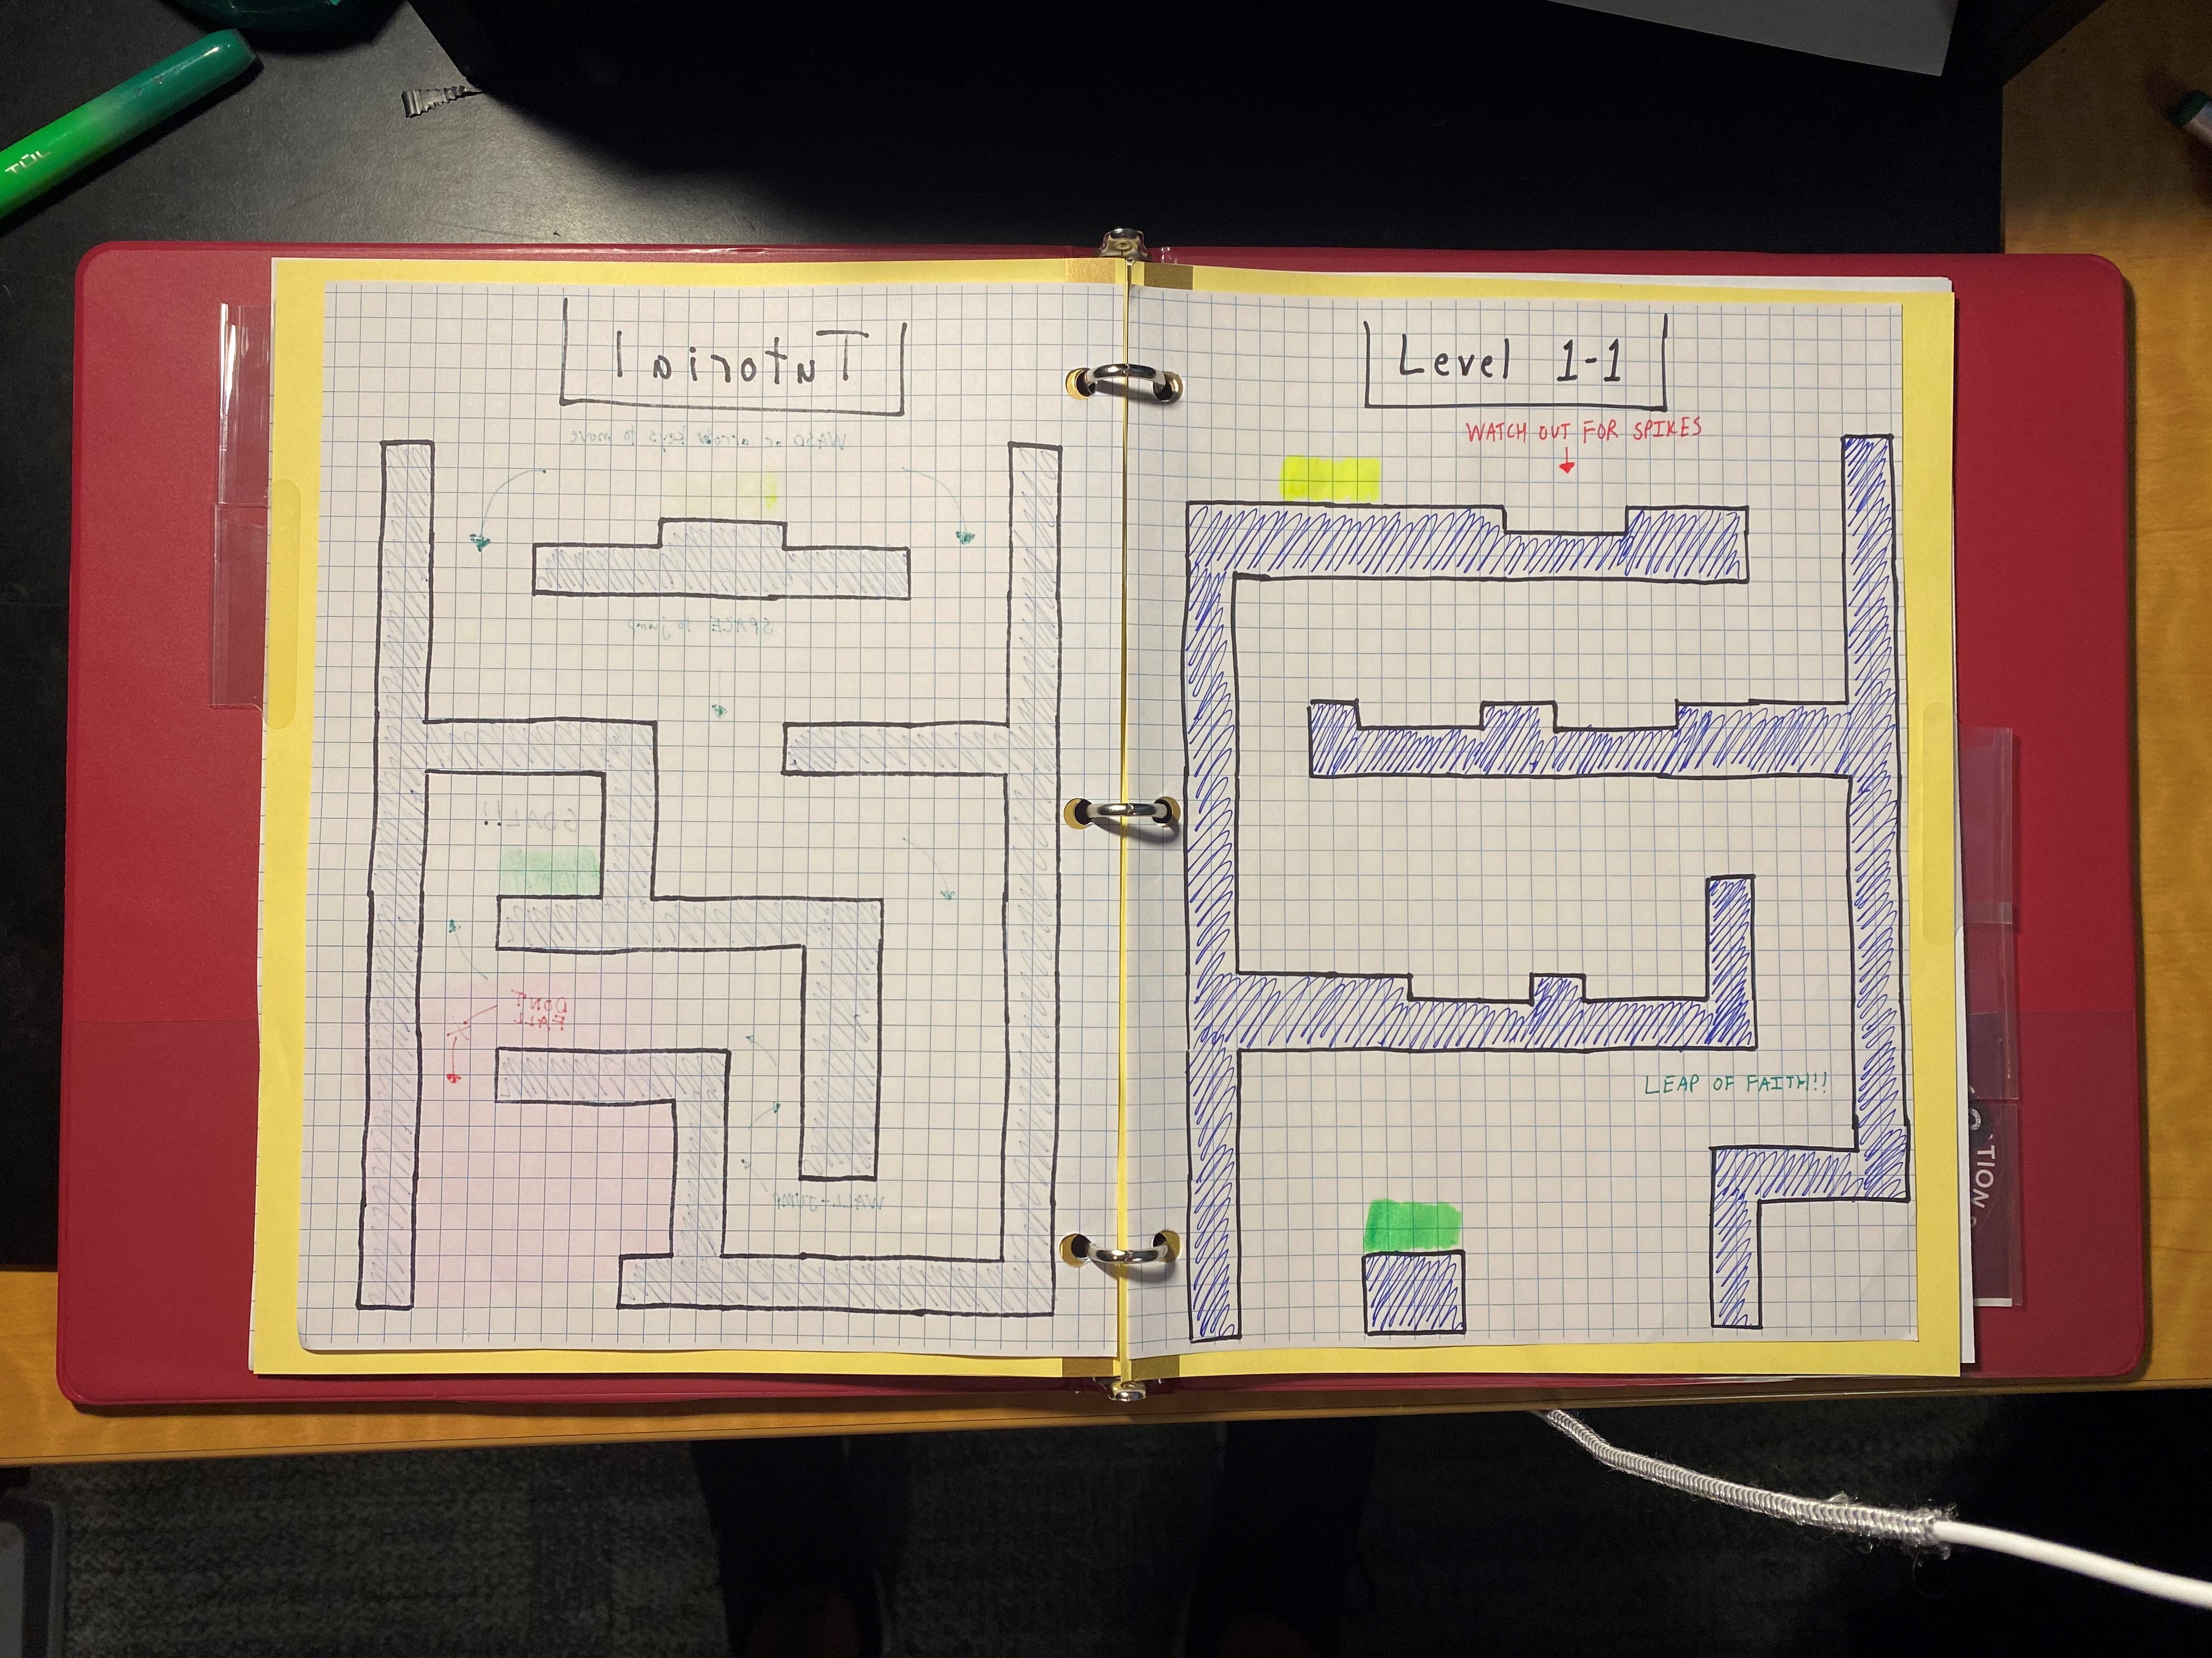 TUL
Tutorial
WASD or arrow keys to move
SPACE to jump
GOAL!!
DON'T
FALL
WALL-JUMP
Level 1-1
WATCH OUT FOR SPIKES
LEAP OF FAITH!!